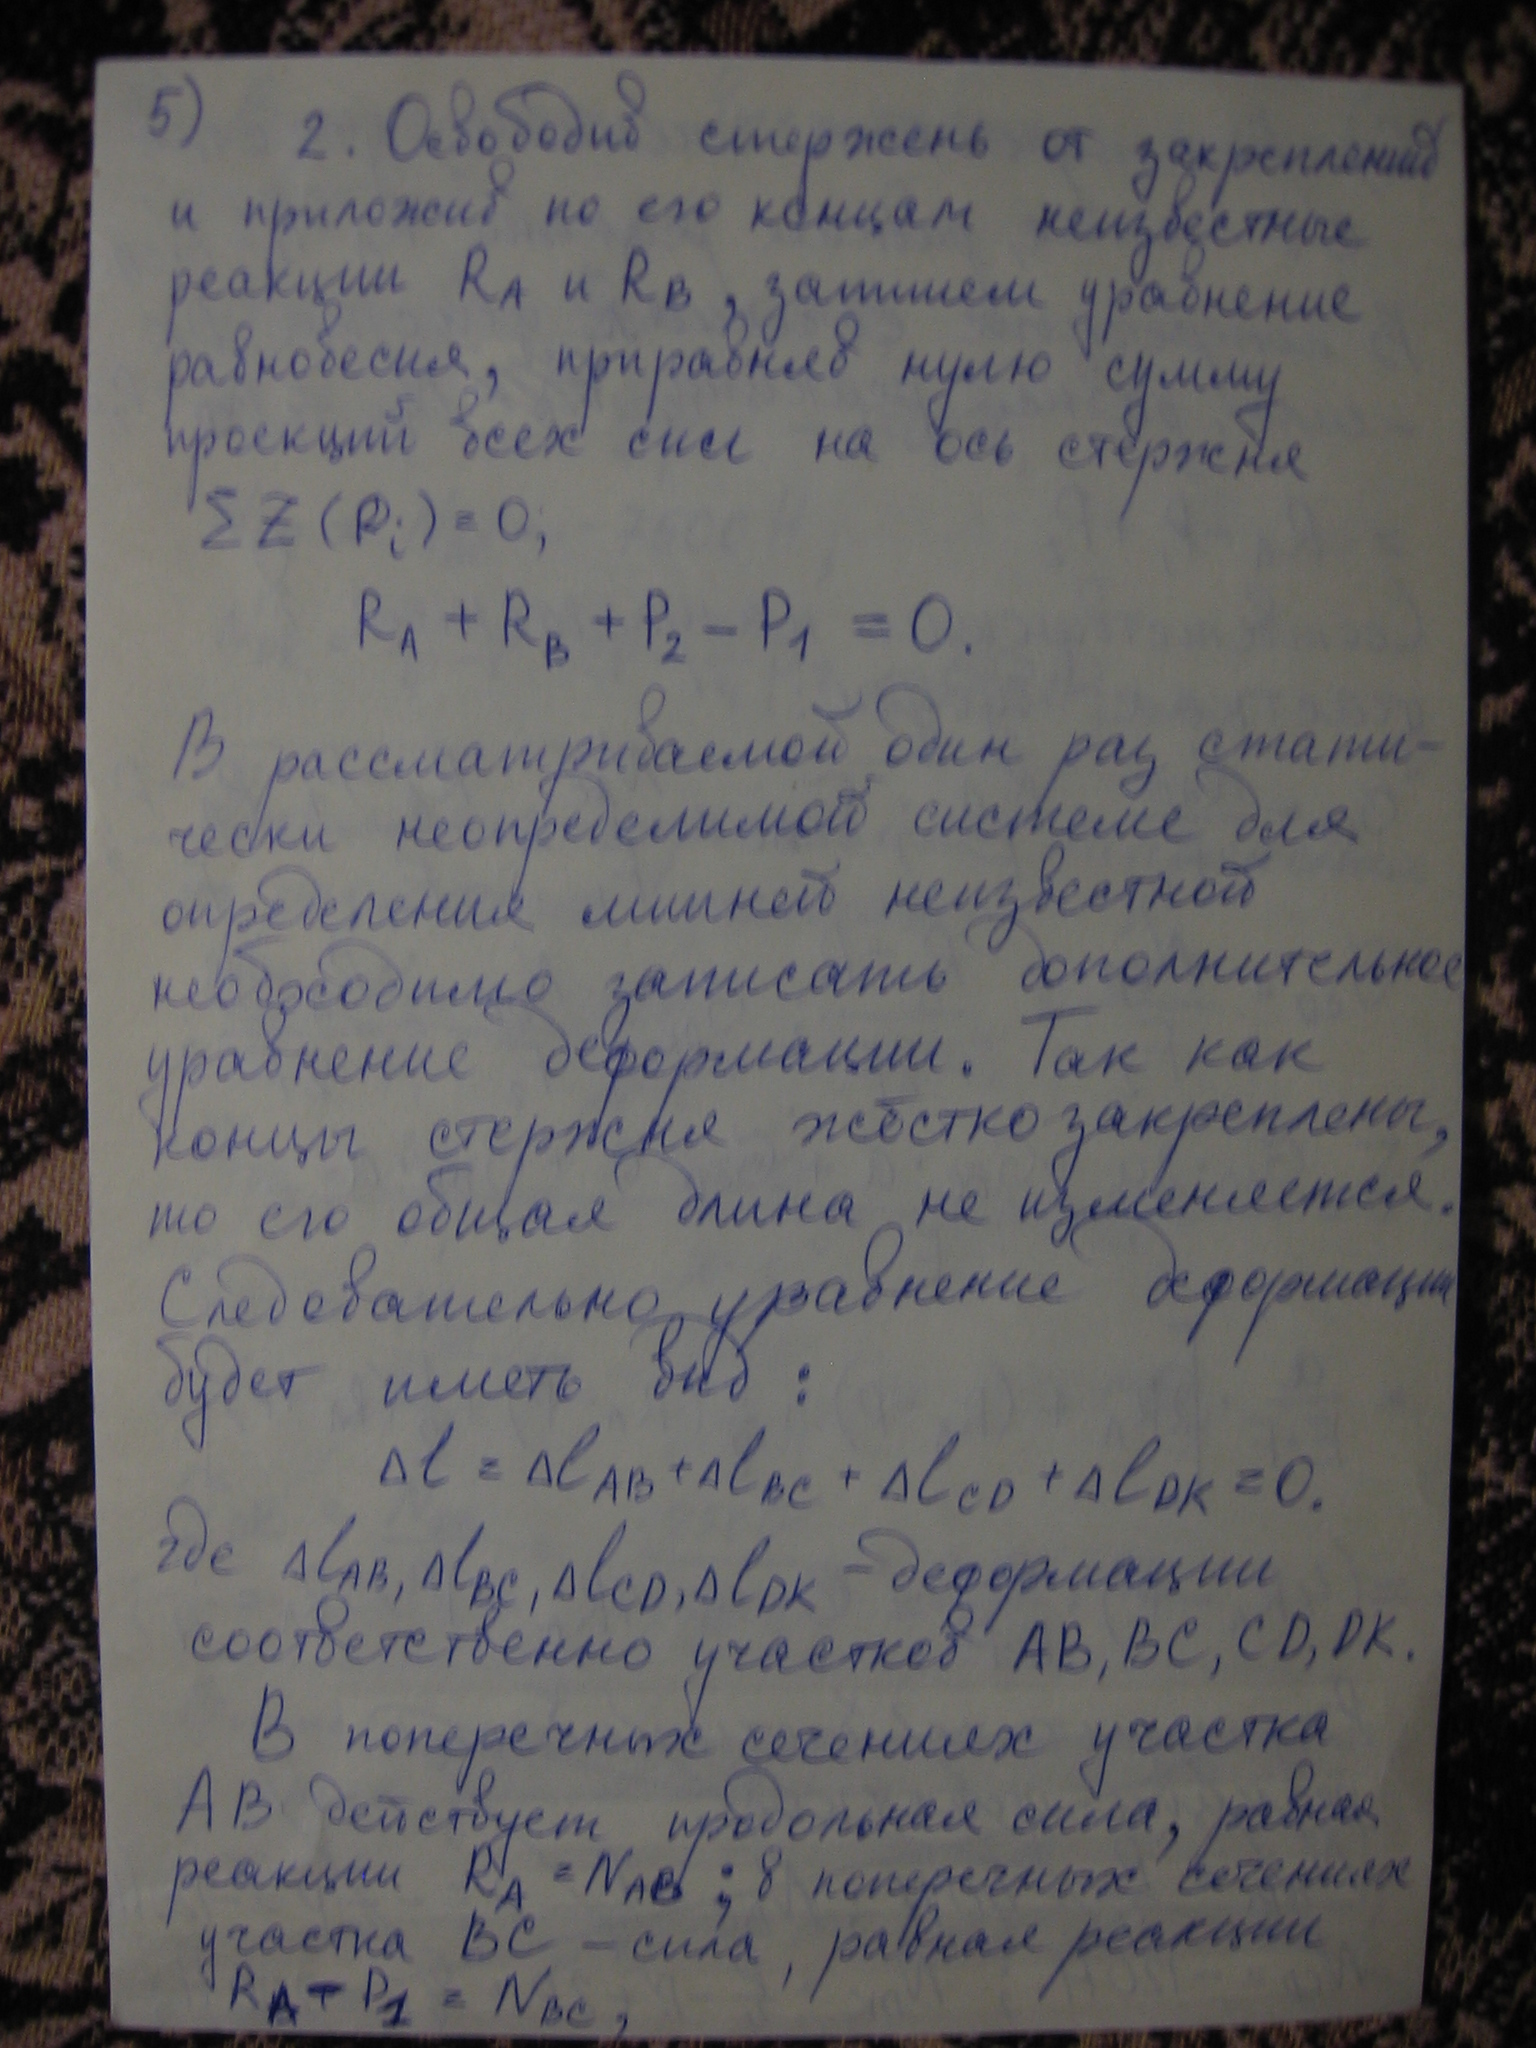 5)
2. Освободив стержень от закреплений
и приложив по его концам неизвестные
реакции R_A и R_B, запишем уравнение
равновесия, приравняв нулю сумму
проекций всех сил на ось стержня
ΣZ(P_i) = 0;
R_A + R_B + P_2 - P_1 = 0.
В рассматриваемой один раз стати-
чески неопределимой системе для
определения лишней неизвестной
необходимо записать дополнительное
уравнение деформации. Так как
концы стержня жёстко закреплены,
то его общая длина не изменяется.
Следовательно уравнение деформации
будет иметь вид:
Δl = Δl_AB + Δl_BC + Δl_CD + Δl_DK = 0.
где Δl_AB, Δl_BC, Δl_CD, Δl_DK - деформации
соответственно участков AB, BC, CD, DK.
В поперечных сечениях участка
AB действует продольная сила, равная
реакции R_A = N_AB; в поперечных сечениях
участка BC - сила, равная реакции
R_A - P_1 = N_BC,